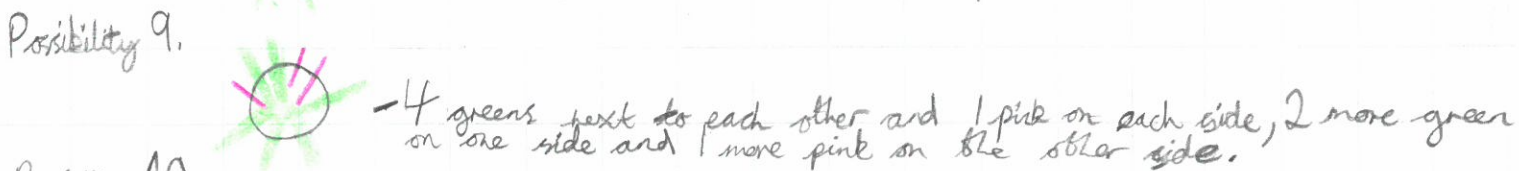 Possibility 9.
-4 greens next to each other and 1 pink on each side, 2 more green
on one side and 1 more pink on the other side.